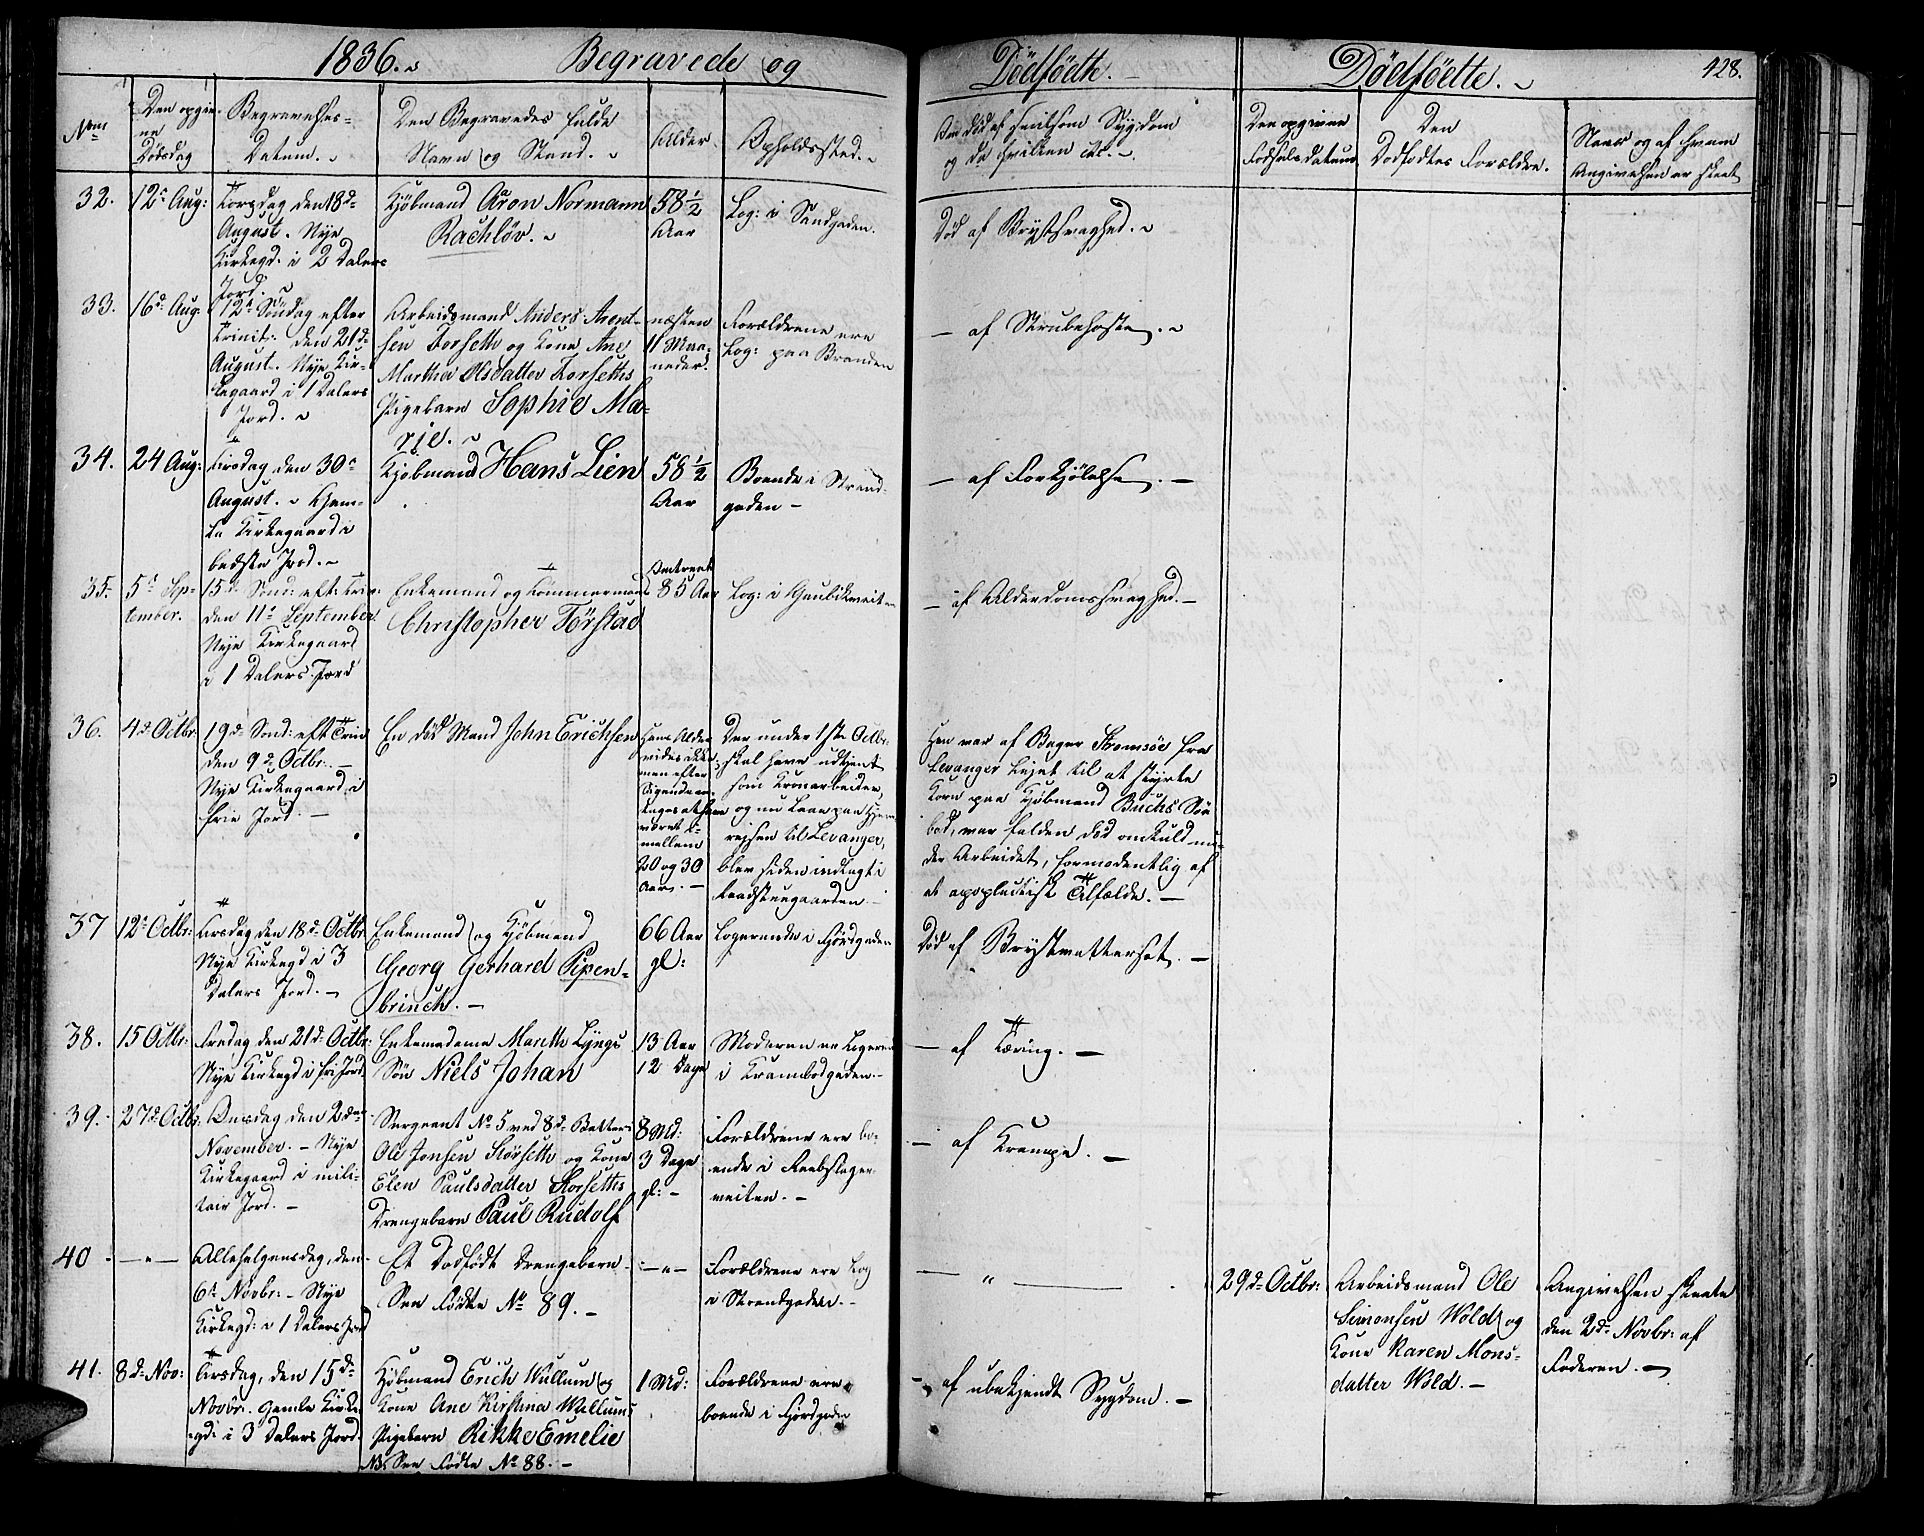 1836. Begravede og Dödfödte. Døelføette. 428.
Nom
Den opgivne Dødsdag
Begravelses-
Datum.
Den Begravedes fulde
Navn og Stand.
Alder.
Opholdssted.
Om død af smitsom Sygdom
og da hvilken etc.
Den opgivne
Fødselsdatum
Den
Dødfødtes Forældre.
Naar og af hvem
Angivelsen er skeet
32. 12te Aug:
Torsdag den 18de
August. Nye
Kirkegd: i 2 Dalers
Jord.
Kjøbmand Aron Normann
Rachløv.
58 1/2
Aar
Log: i Sandgaden.
Død af Brystsvaghed.
33. 16de Aug:
12te Søndag efter
Trinit: den 21de
August. Nye Kir-
kegaard i 1 Dalers
Jord.
Arbeidsmand Anders Arent-
sen Forseth og Kone Ane
Martha Olsdatter Forseths
Pigebarn Sophie Ma-
rie.
næsten
11 Maa-
neder.
Forældrene ere
Log: paa Branden
— af Strubehoste.
34. 24 Aug:
Tirsdag den 30te
August. Gam-
le Kirkegaard i
bedste Jord.
Kjøbmand Hans Lien
58 1/2
Aar
Boende i Strand-
gaden —
— af Forkjølelse. —
35. 5te Sep-
tember.
15de Sønd: eft: Trin:
den 11te September.
Nye Kirkegaard
i 1 Dalers Jord
Enkemand og Tømmermand
Christopher Törstad
Omtrent
85 Aar
Log: i Gaubækveiten
— af Alderdomssvaghed. —
36. 4de Octbr:
19de Sønd: eft Trin
den 9de Octbr. —
Nye Kirkegaard i
frie Jord. —
En død Mand John Erichsen
Hans Alder
vides ikke,
men efter
Sigende an-
tages at have
været i-
mellem
20 og 30
Aar. —
Der under 1ste Octbr:
skal have udtjent
som Kronarbeider,
og nu laae paa Hjem-
reisen til Levanger,
blev siden indlagt i
Raadstuegaarden —
Han var af Bager Stromsöe fra
Levanger leiet til at styrte
Korn paa Kjøbmand Buchs Søe-
bod, var falden død omkuld un-
der Arbeidet, formodentlig af
et apoplectisk Tilfælde. —
37 12te Octbr:
Tirsdag den 18de Octbr
Nye Kirkegd i 3
Dalers Jord. —
Enkemand og Kjøbmand
Georg Gerhard Pipen-
brinch. —
66 Aar
gl:
Logerende i Fjordgaden
Død af Brystvattersot. —
38. 15 Octbr:
Fredag den 21de Octbr:
Nye Kirkegd i fri Jord
Enkemadame Mareth Lyngs
Søn Niels Johan
13 Aar
12 Dage
Moderen er Logeren
i Krambodgaden. —
— af Tæring. —
39. 27de Octbr:
Onsdag den 2den
November. — Nye
Kirkegaard i mili-
tair Jord. —
Sergeant No 5 ved 8de Batteri
Ole Jonsen Störseth og Kone
Elen Paulsdatter Storseths
Drengebarn Paul Rudolf
8 Md:
3 Dage
gl: —
Forældrene ere bo-
ende i Reebslager-
veiten. —
— af Krampe. —
40 — " —
Allehelgensdag, den
6te Novbr: — Nye
Kirkegd: i 1 Dalers Jord
Et Dødfødt Drengebarn
See Fødte No 89. —
— " —
Forældrene ere Log
i Strandgaden. —
— " —
29de Octbr:
Arbeidsmand Ole
Simonsen Wold og
Kone Karen Mons-
datter Wold. —
Angivelsen skeete
den 2de Novbr: af
Faderen. —
41. 8de Nov:
Tirsdag, den 15de
Novbr. Gamle Kirke-
gd: i 3 Dalers Jord.
Kjøbmand Erich Wullum og
Kone Ane Kirstina Wullums
Pigebarn Rikke Emelie
NB. See Fødte No 88. —
1 Md:
Forældrene ere
boende i Fjordgaden
— af ubekjendt Sygdom. —